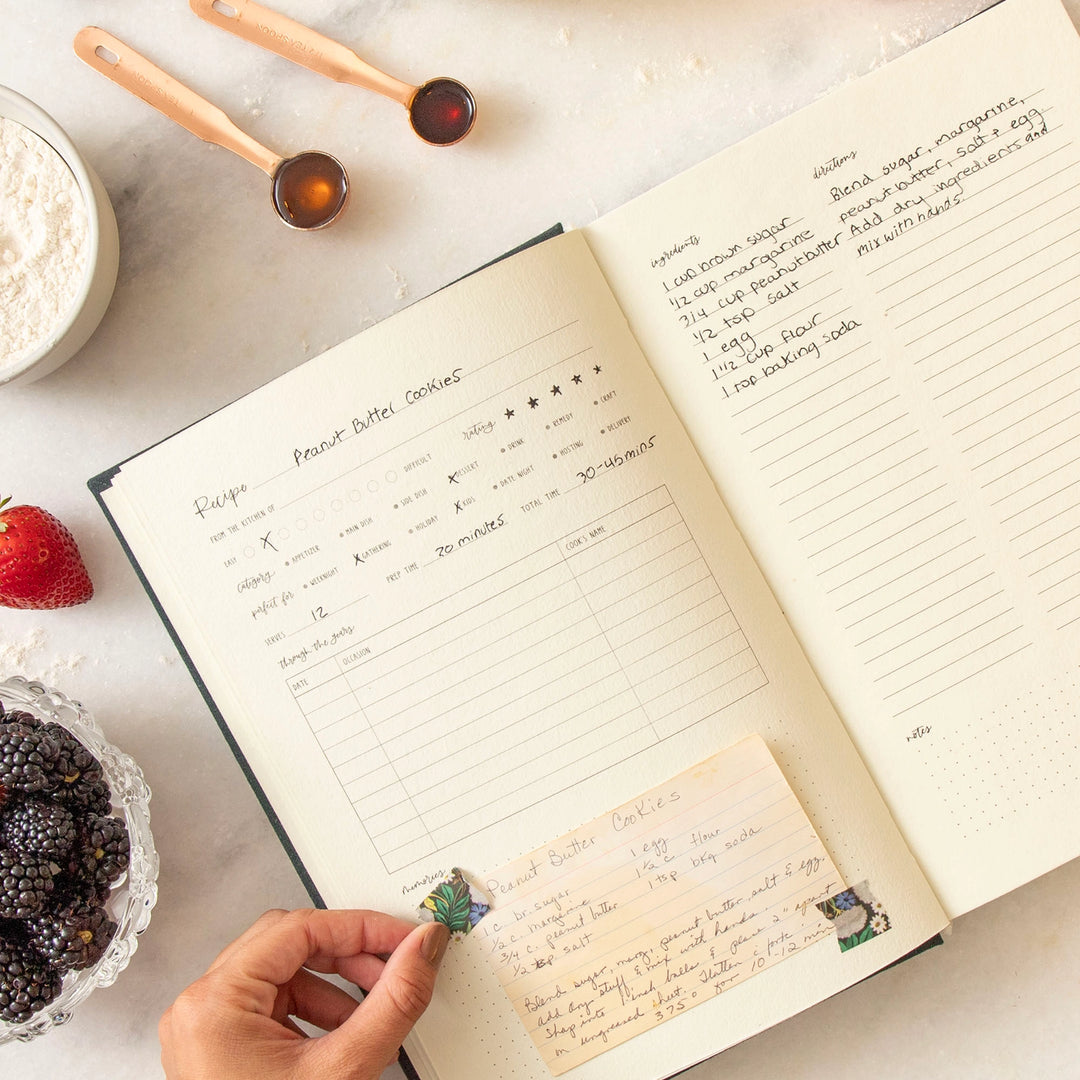 1 TEASPOON
1/2 TEASPOON
Recipe Peanut Butter Cookies
FROM THE KITCHEN OF
rating ★ ★ ★ ★ ★
EASY X DIFFICULT
category APPETIZER MAIN DISH SIDE DISH X DESSERT DRINK REMEDY CRAFT
perfect for WEEKNIGHT X GATHERING HOLIDAY X KIDS DATE NIGHT HOSTING DELIVERY
SERVES 12 PREP TIME 20 minutes TOTAL TIME 30-45mins
through the years
DATE OCCASION COOK'S NAME
memories
Peanut Butter Cookies
1 c. br. sugar
1/2 c. margarine
3/4 c. peanut butter
1/2 tsp salt
1 egg
1 1/2 c. flour
1 tsp bkg soda
Blend sugar, marg, peanut butter, salt & egg
add dry stuff & mix with hands.
Shap into 1 inch balls & place 2" apart
on ungreased sheet. Flatten c fork
375° for 10-12 min
ingredients
1 cup brown sugar
1/2 cup margarine
3/4 cup peanutbutter
1/2 tsp salt
1 egg
1 1/2 cup flour
1 tsp baking soda
directions
Blend sugar, margarine,
peanutbutter, salt & egg
Add dry ingredients and
mix with hands.
notes